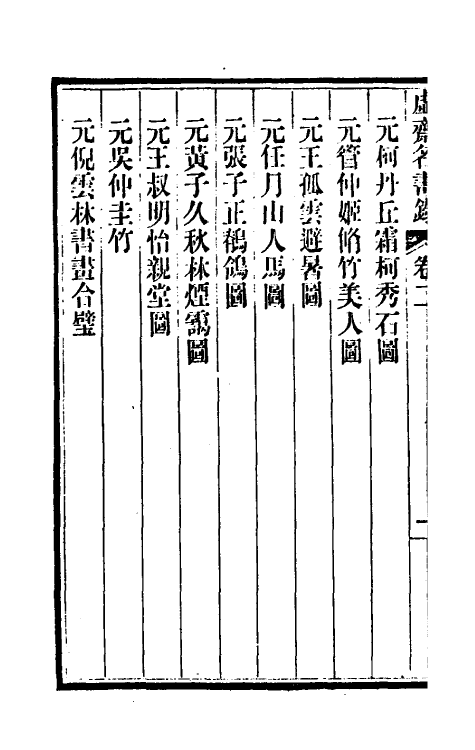 虛齋名畫錄 卷二
元柯丹丘霜柯秀石圖
元管仲姬脩竹美人圖
元王孤雲避暑圖
元任月山人馬圖
元張子正鶺鴒圖
元黃子久秋林煙靄圖
元王叔明怡親堂圖
元吳仲圭竹
元倪雲林書畫合璧